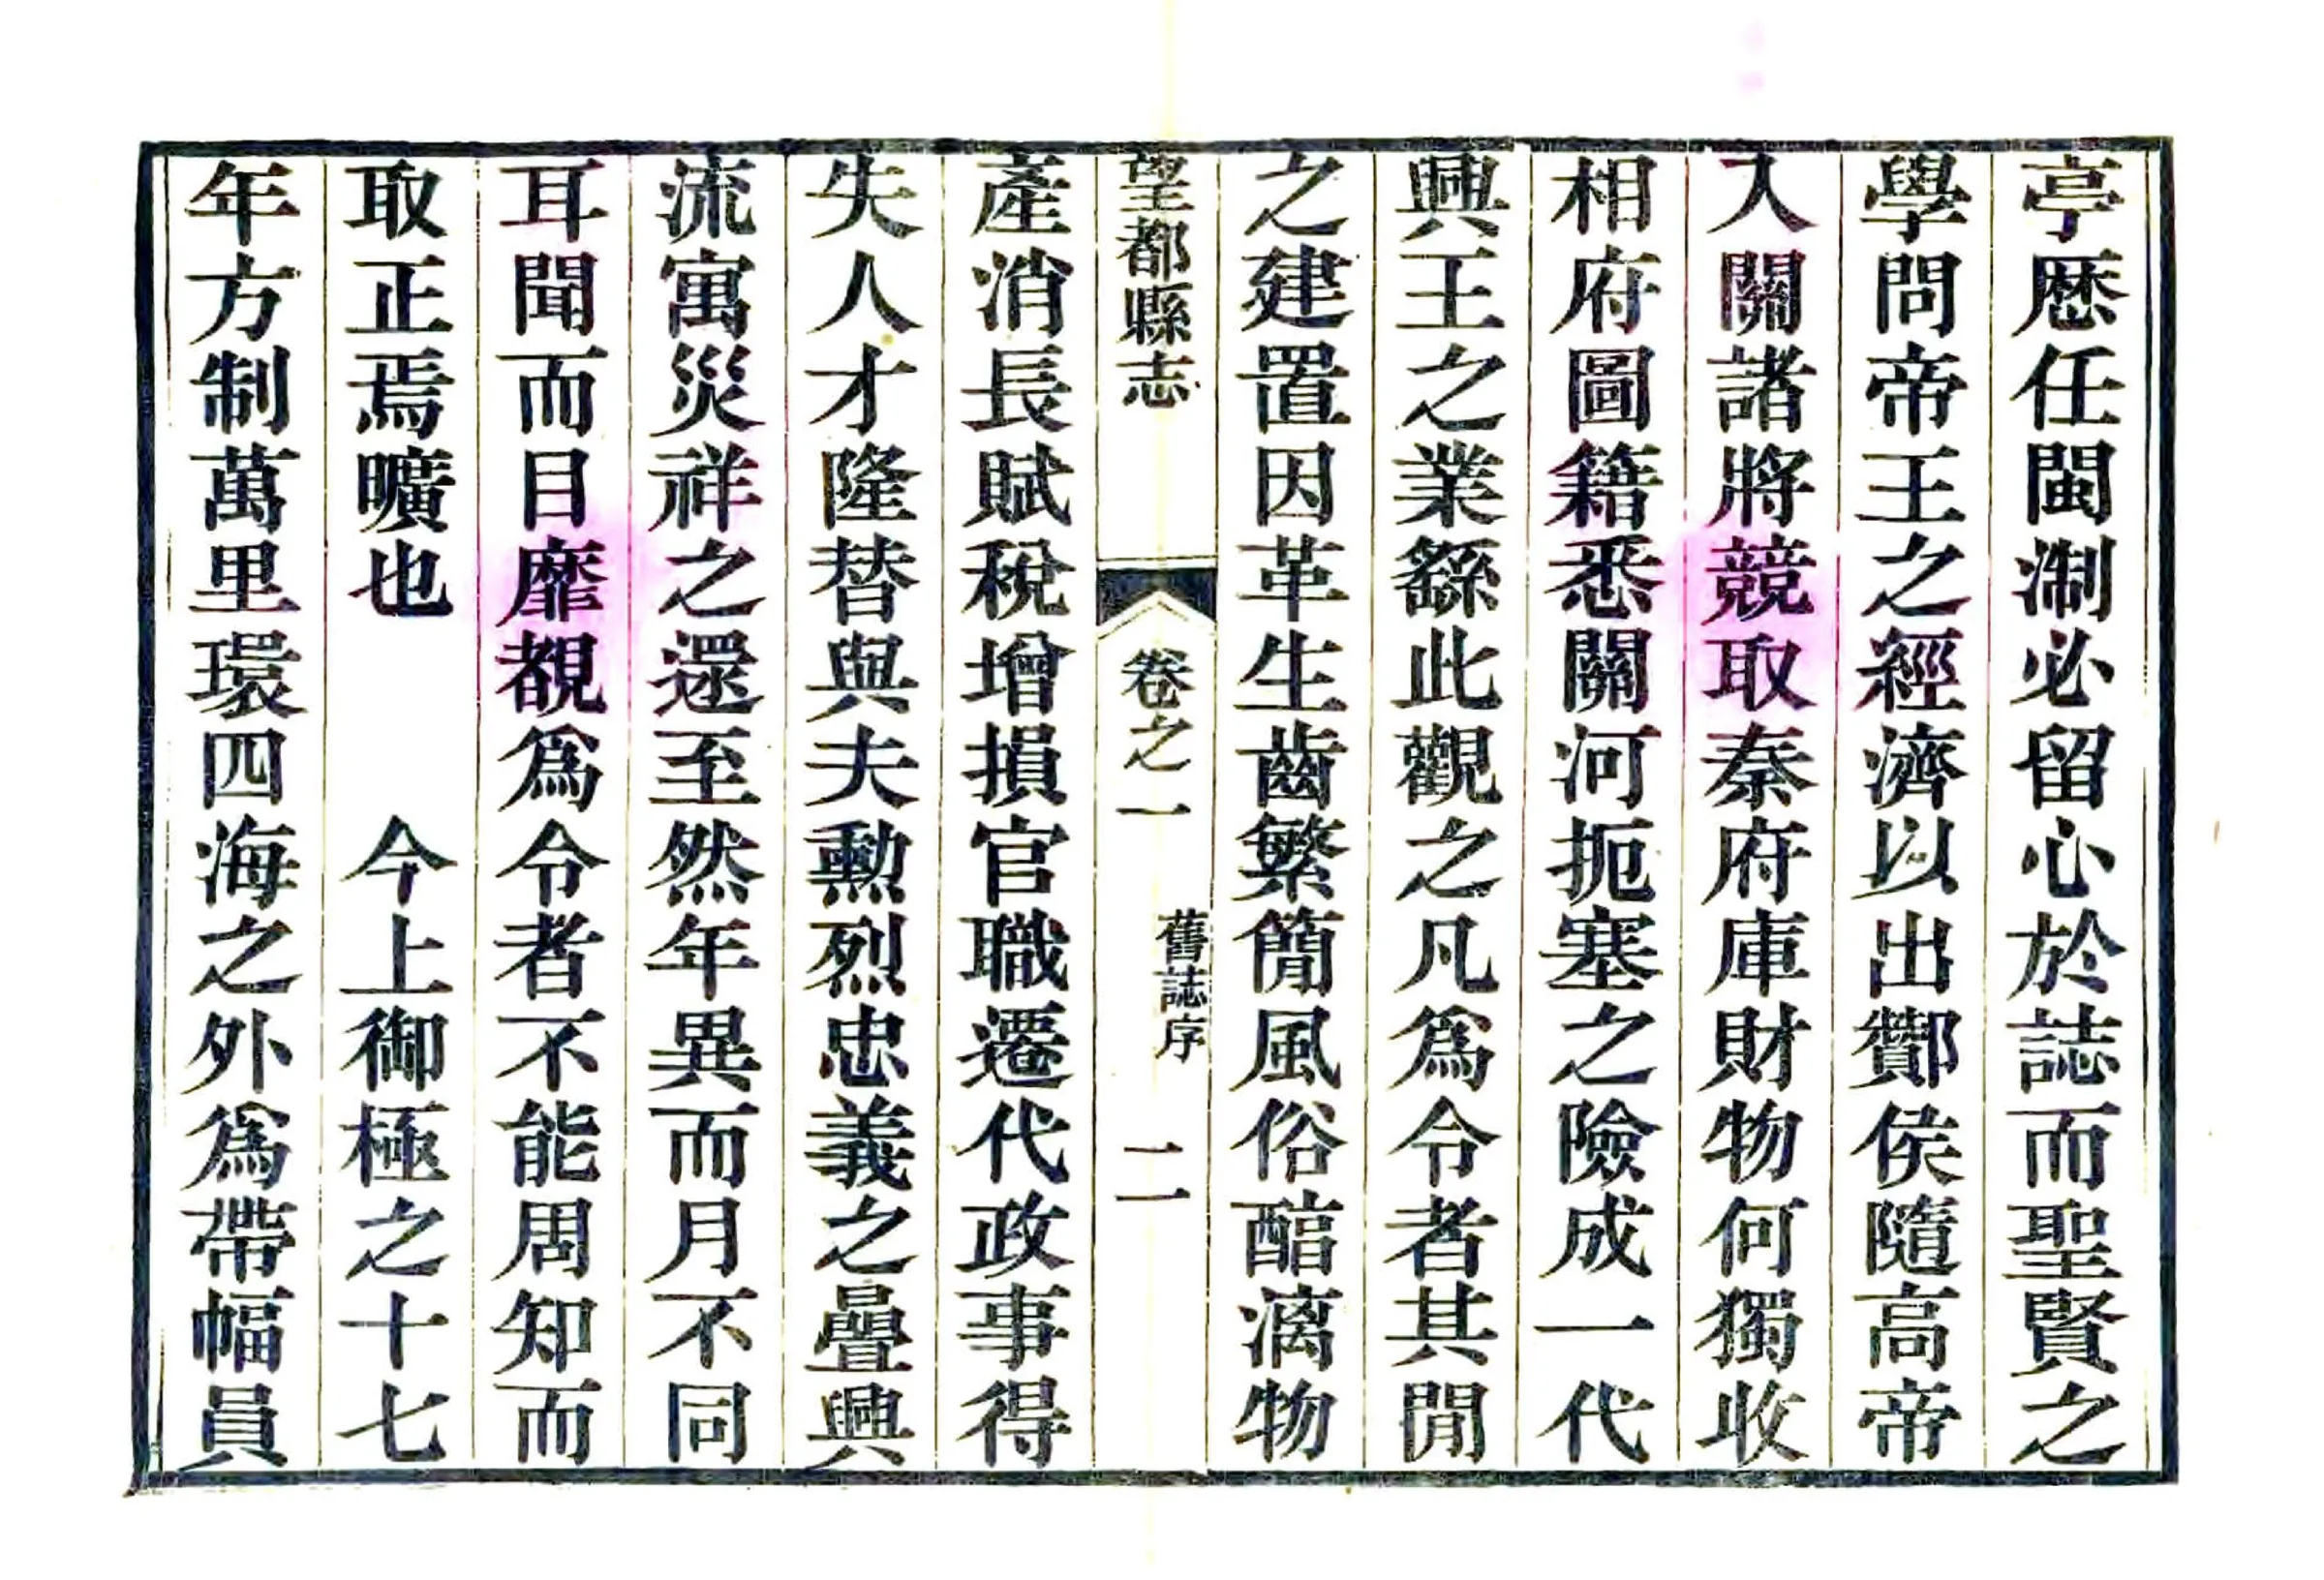 亭歷任閩淛必留心於誌而聖賢之
學問帝王之經濟以出酇侯隨高帝
入關諸將競取秦府庫財物何獨收
相府圖籍悉關河扼塞之險成一代
興王之業繇此觀之凡爲令者其閒
之建置因革生齒繁簡風俗醕漓物
望都縣志
卷之一
舊誌序
二
產消長賦稅增損官職遷代政事得
失人才隆替與夫勲烈忠義之疊興
流寓災祥之還至然年異而月不同
耳聞而目靡覩爲令者不能周知而
取正焉曠也 今上御極之十七
年方制萬里環四海之外爲帶幅員